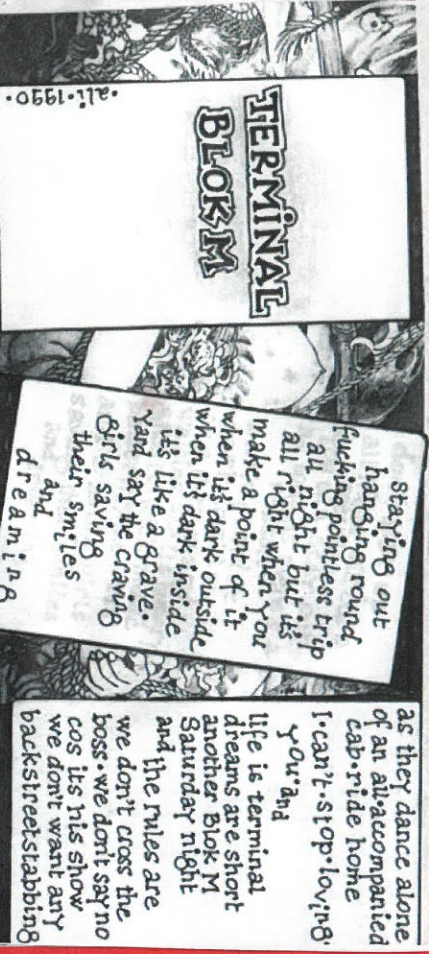 TERMINAL
BLOK M
•ali•1990•
staying out
hanging round
fucking pointless trip
all night but it's
all right when you
make a point of it
when it's dark outside
when it's dark inside
it's like a grave•
yard say the craving
girls saving
their smiles
and
dreaming
as they dance alone
of an all•accompanied
cab•ride home
I•can't•stop•loving•
you•and
life is terminal
dreams are short
another Blok M
Saturday night
and the rules are
we don't cross the
boss•we don't say no
cos its his show
we don't want any
backstreetstabbing